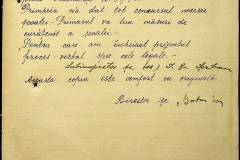 Primăria n'a dat tot concursul nescar
școalei.- Primarul va lua măsuri de
curățenit a școalei.-
Pentru care am încheiat prezentul
proces-verbal spre cele legale.-
Subinspector șc. (ss)
Aceasta copia este conform cu originalul
Director șc.